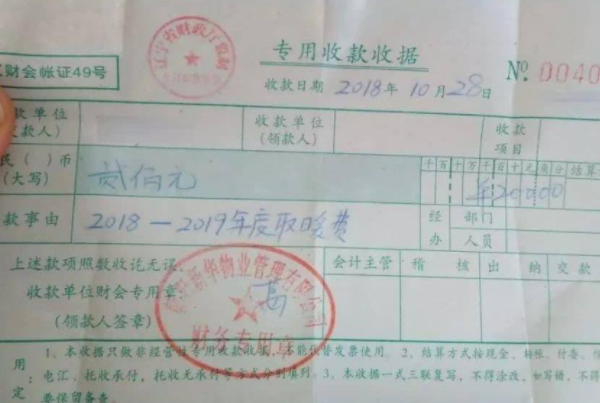 辽宁省财政厅监制
专用收款收据
财会帐证49号
收款日期 2018年10月28日
№ 0040
款单位 收款单位 收款
款人) (领款人) 项目
民( )币 千百十万千百十元角分 结算
(大写) 贰佰元 ¥20000
款事由 2018—2019年度取暖费 经办 部门
人员
上述款项照数收讫无误。 会计主管 稽核 出纳 交款
收款单位财会专用章:
(领款人签章)
新华物业管理有限公司
财务专用章
用 1、本收据只做非经营性专用收款收据,不能代替发票使用。 2、结算方式按现金、转帐、付委、
电汇、托收承付,托收无承付等方式分别填列。3、本收据一式三联复写,不得涂改,如写错,不得
定 要保留备查。